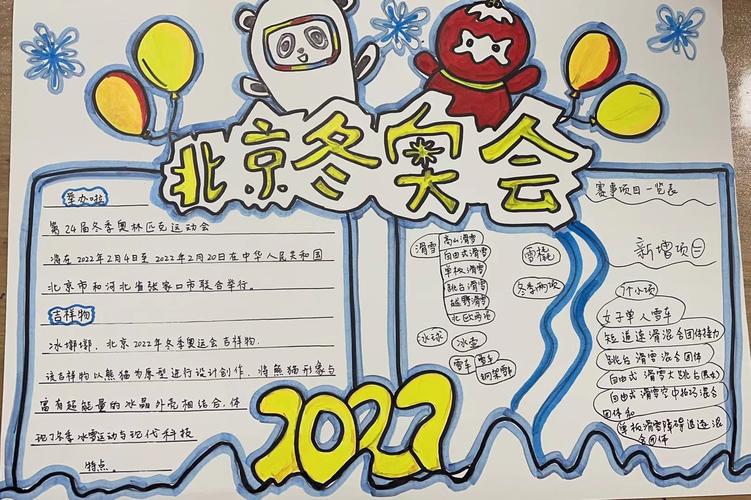 北京冬奥会
举办啦
第24届冬季奥林匹克运动会
将在2022年2月4日至2022年2月20日在中华人民共和国
北京市和河北省张家口市联合举行。
吉祥物
冰墩墩，北京2022年冬季奥运会吉祥物.
该吉祥物以熊猫为原型进行设计创作，将熊猫形象与
富有超能量的冰晶外壳相结合，体
现了冬季冰雪运动与现代科技
特点。
2022
赛事项目一览表
滑雪
高山滑雪
自由式滑雪
单板滑雪
跳台滑雪
越野滑雪
北欧两项
雪橇
冬季两项
冰球
冰壶
雪车
雪车
钢架雪车
新增项目
7个小项
女子单人雪车
短道速滑混合团体接力
跳台滑雪混合团体
自由式滑雪大跳台
自由式滑雪空中技巧混合
团体和
单板滑雪障碍追逐混
合团体